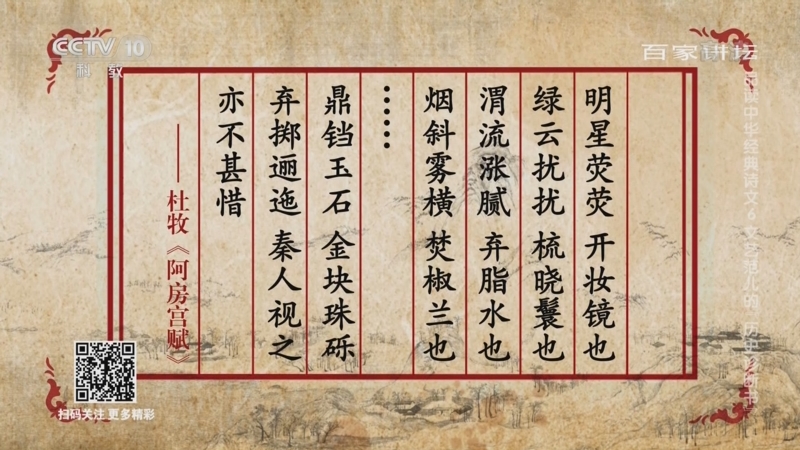 CCTV 10
科教
百家讲坛
明星荧荧 开妆镜也
绿云扰扰 梳晓鬟也
渭流涨腻 弃脂水也
烟斜雾横 焚椒兰也
……
鼎铛玉石 金块珠砾
弃掷逦迤 秦人视之
亦不甚惜
——杜牧《阿房宫赋》
扫码关注 更多精彩